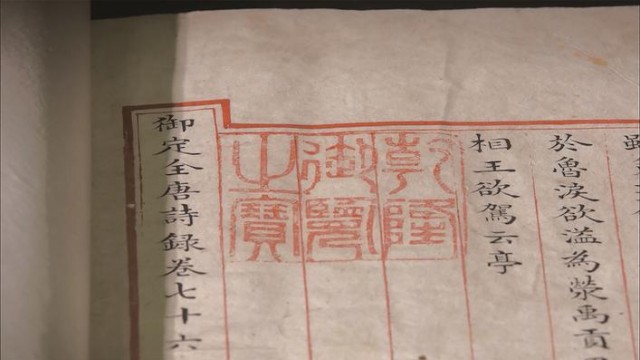 於魯淚欲溢為滎禹貢
相王欲駕云亭
乾隆
御覽
之寶
御定全唐詩録卷七十六